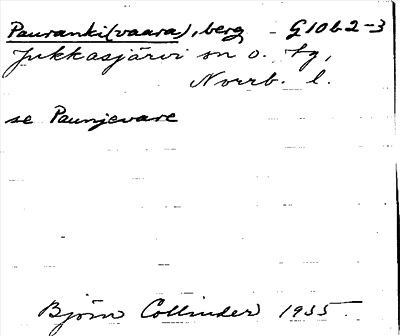 Pauranki(vaara), berg G10b2-3
Jukkasjärvi sn o. tg,
Norrb. l.
se Paunjevare
Björn Collinder 1935.